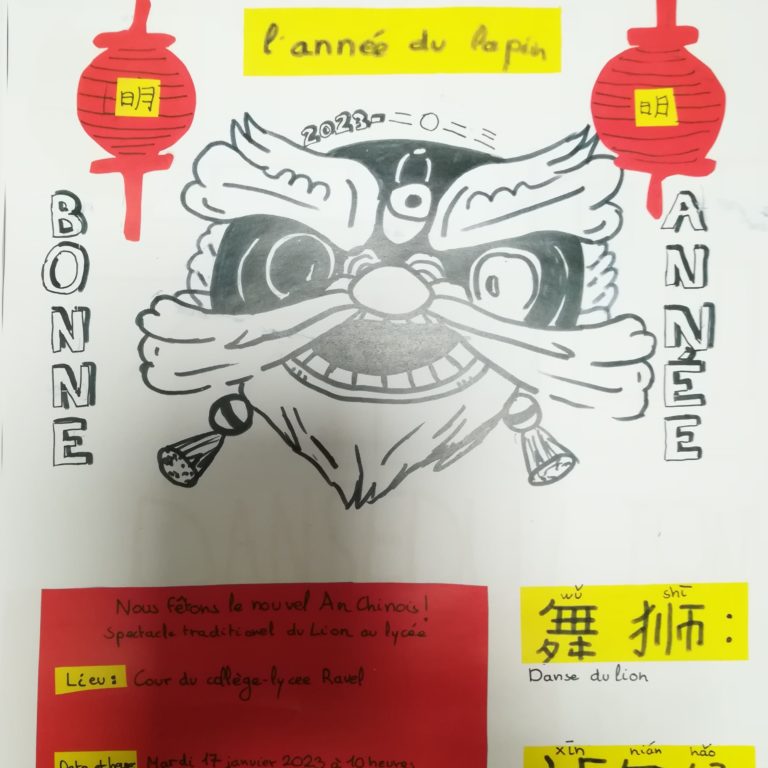 l'année du lapin
明
明
2023-二〇二三
BONNE
ANNÉE
Nous fêtons le nouvel An Chinois!
Spectacle traditionel du Lion au lycée
Lieu: Cour du collège-lycée Ravel
Date et heure Mardi 17 janvier 2023 à 10 heures
wǔ shī
舞狮:
Danse du lion
xīn nián hǎo